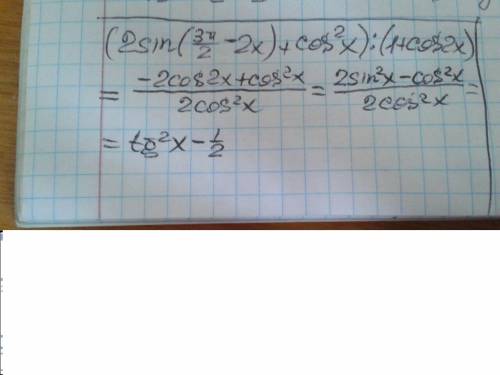 (2sin(3π/2 - 2x) + cos²x) : (1 + cos2x)
= (-2cos2x + cos²x)/(2cos²x) = (2sin²x - cos²x)/(2cos²x) =
= tg²x - 1/2